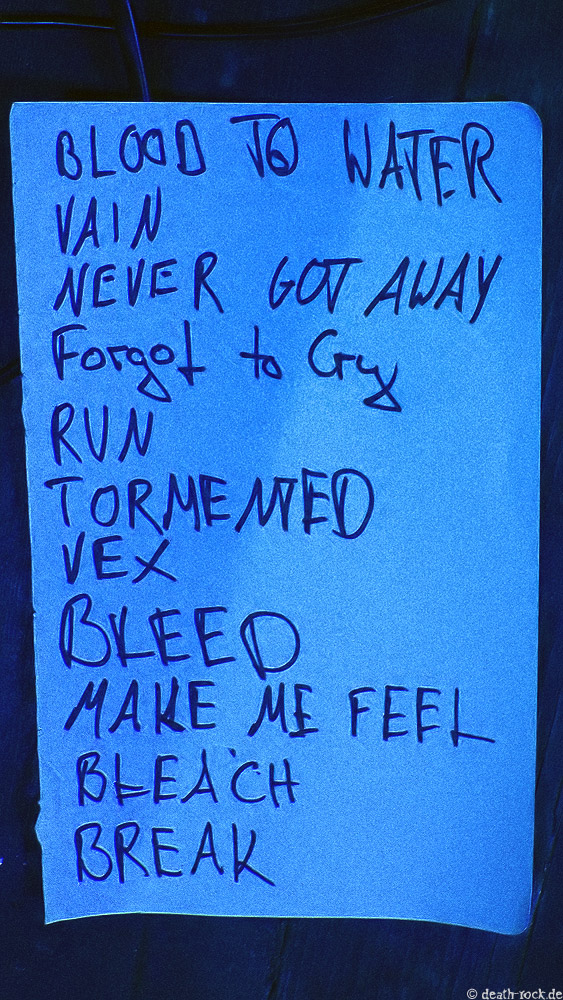 BLOOD TO WATER
VAIN
NEVER GOT AWAY
Forgot to Cry
RUN
TORMENTED
VEX
BLEED
MAKE ME FEEL
BLEACH
BREAK
© death-rock.de